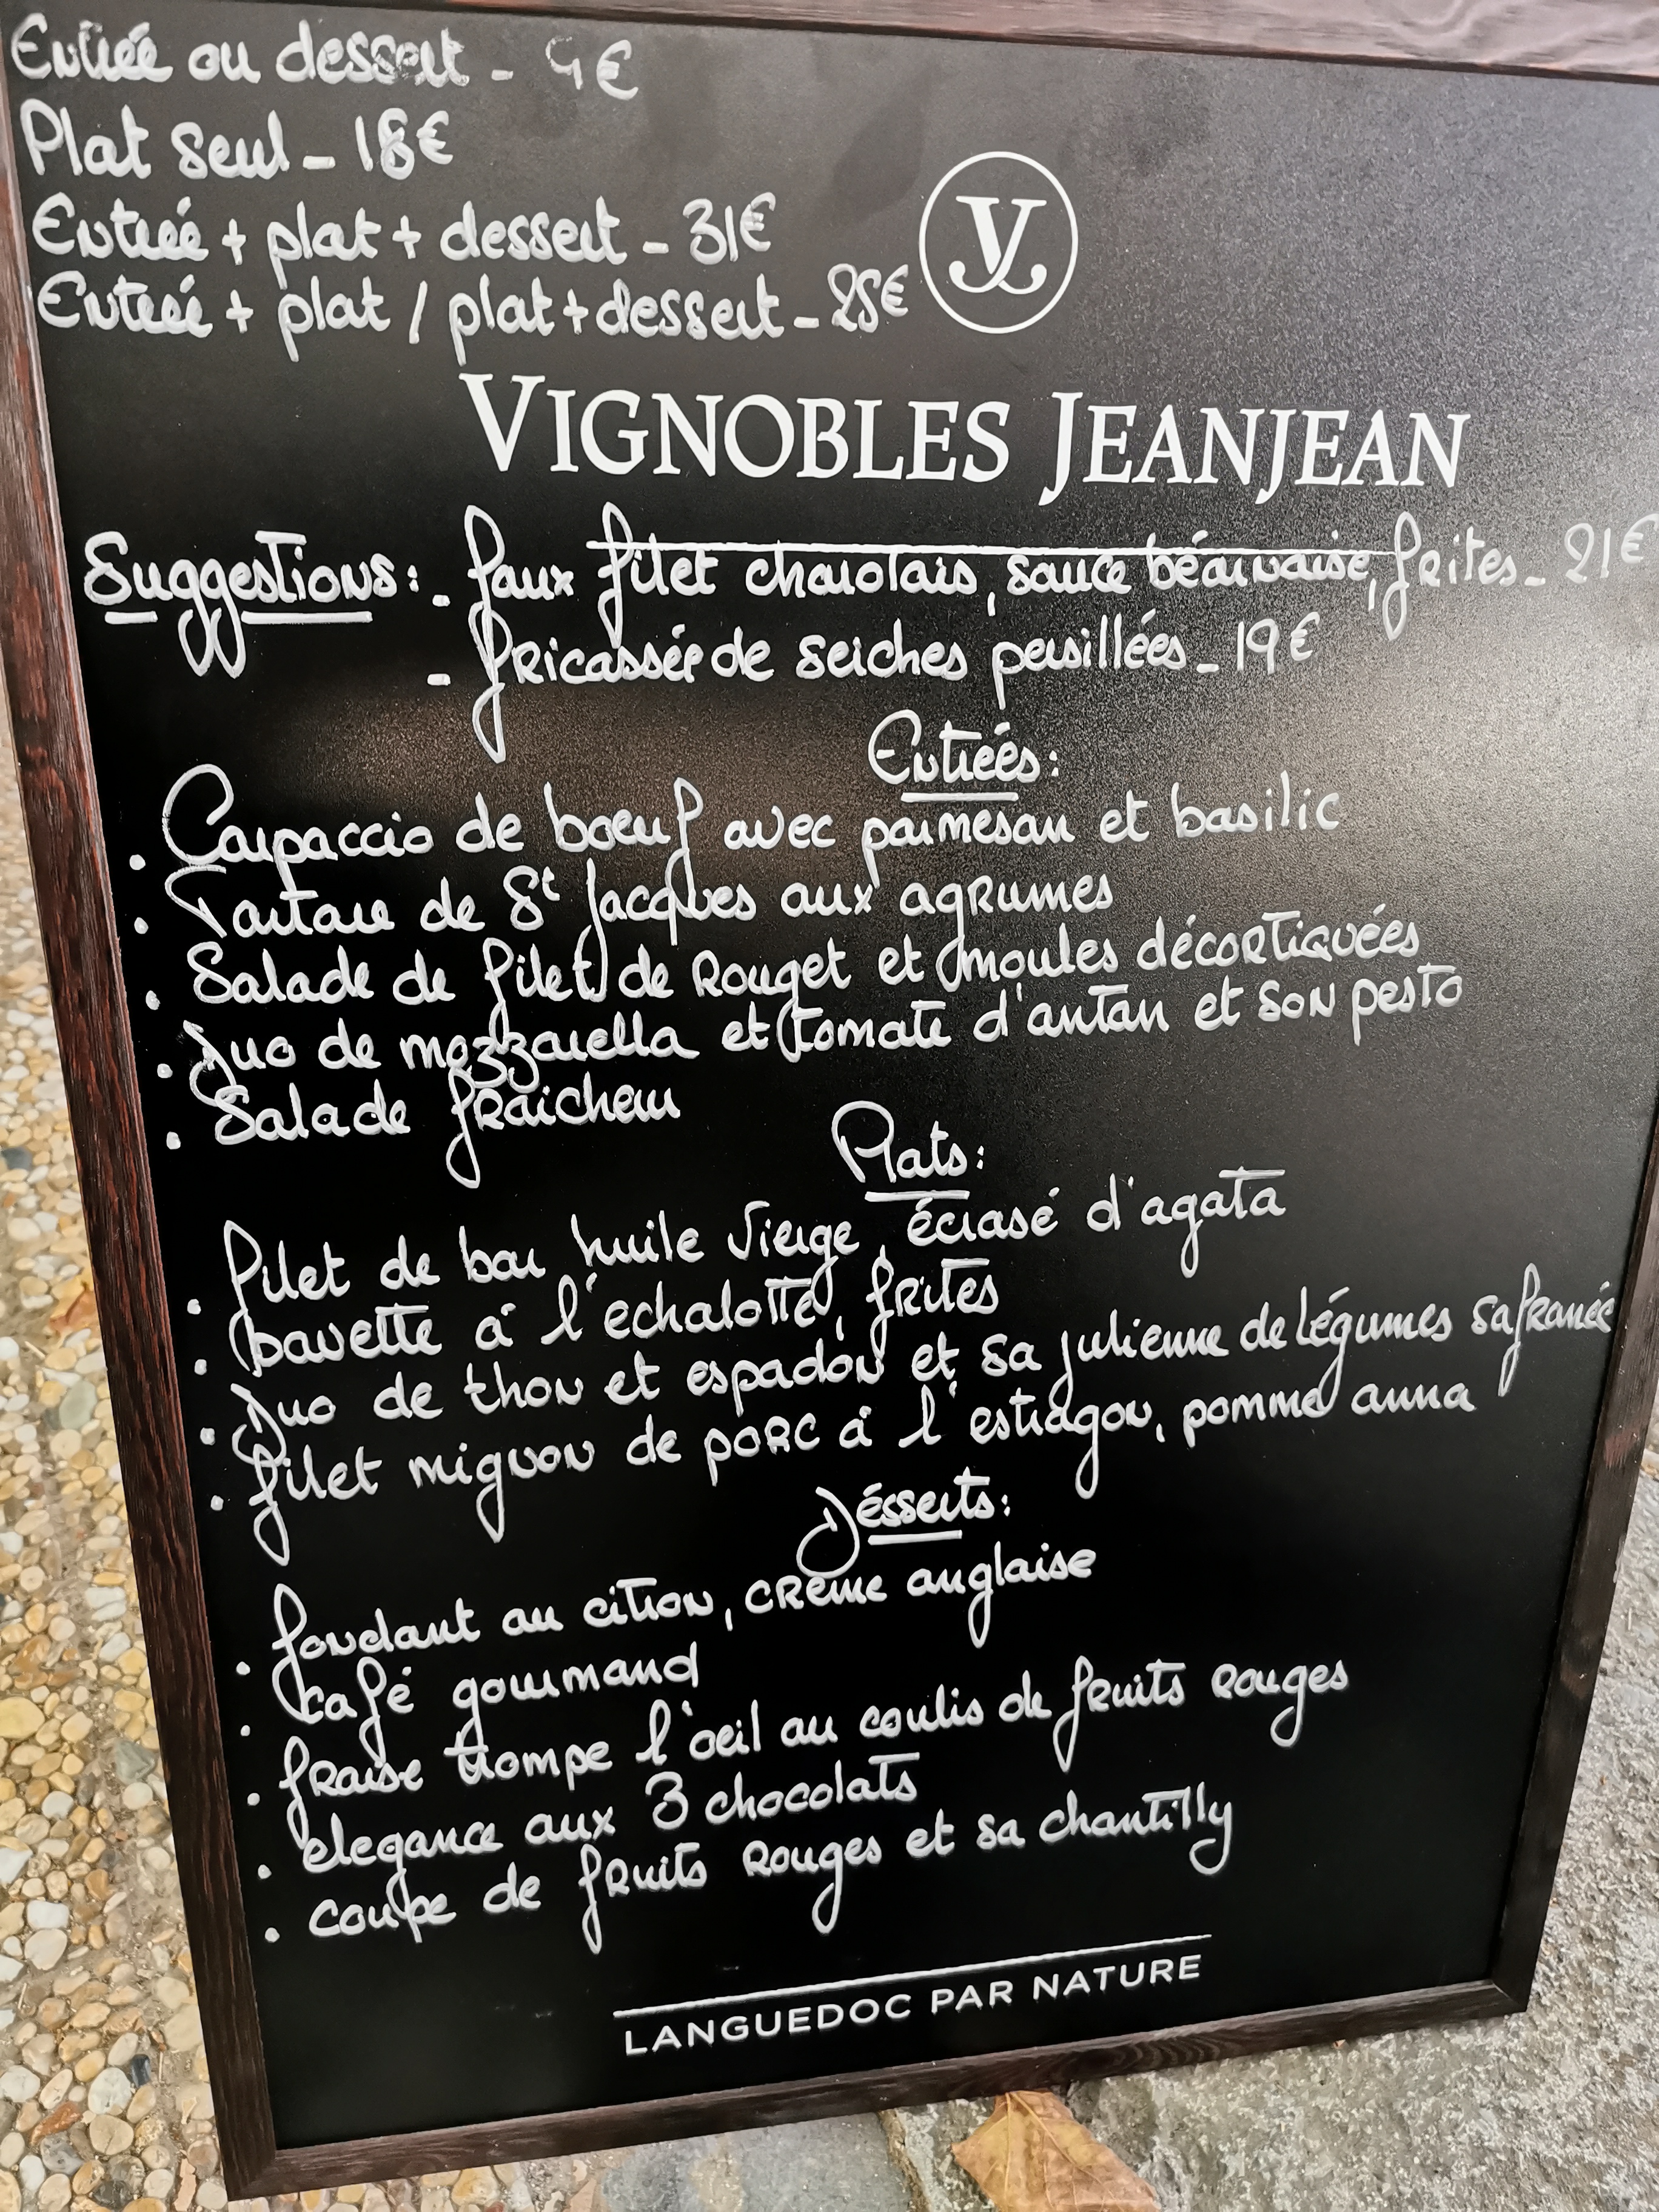 Entrée ou dessert - 9€
Plat seul - 18€
Entrée + plat + dessert - 31€
Entrée + plat / plat + dessert - 25€
VJ
VIGNOBLES JEANJEAN
Suggestions: - faux filet charolais, sauce béarnaise, frites - 21€
- fricassée de seiches persillées - 19€
Entrées:
. Carpaccio de boeuf avec parmesan et basilic
. Tartare de St Jacques aux agrumes
. Salade de filet de rouget et moules décortiquées
. Duo de mozzarella et tomate d'antan et son pesto
. Salade fraicheur
Plats:
. filet de bar huile vierge, écrasé d'agata
. bavette à l'echalotte, frites
. Duo de thon et espadon et sa julienne de légumes safranée
. filet mignon de porc à l'estragon, pomme anna
Désserts:
. fondant au citron, crème anglaise
. café gourmand
. fraise trompe l'oeil au coulis de fruits rouges
. elegance aux 3 chocolats
. coupe de fruits rouges et sa chantilly
LANGUEDOC PAR NATURE